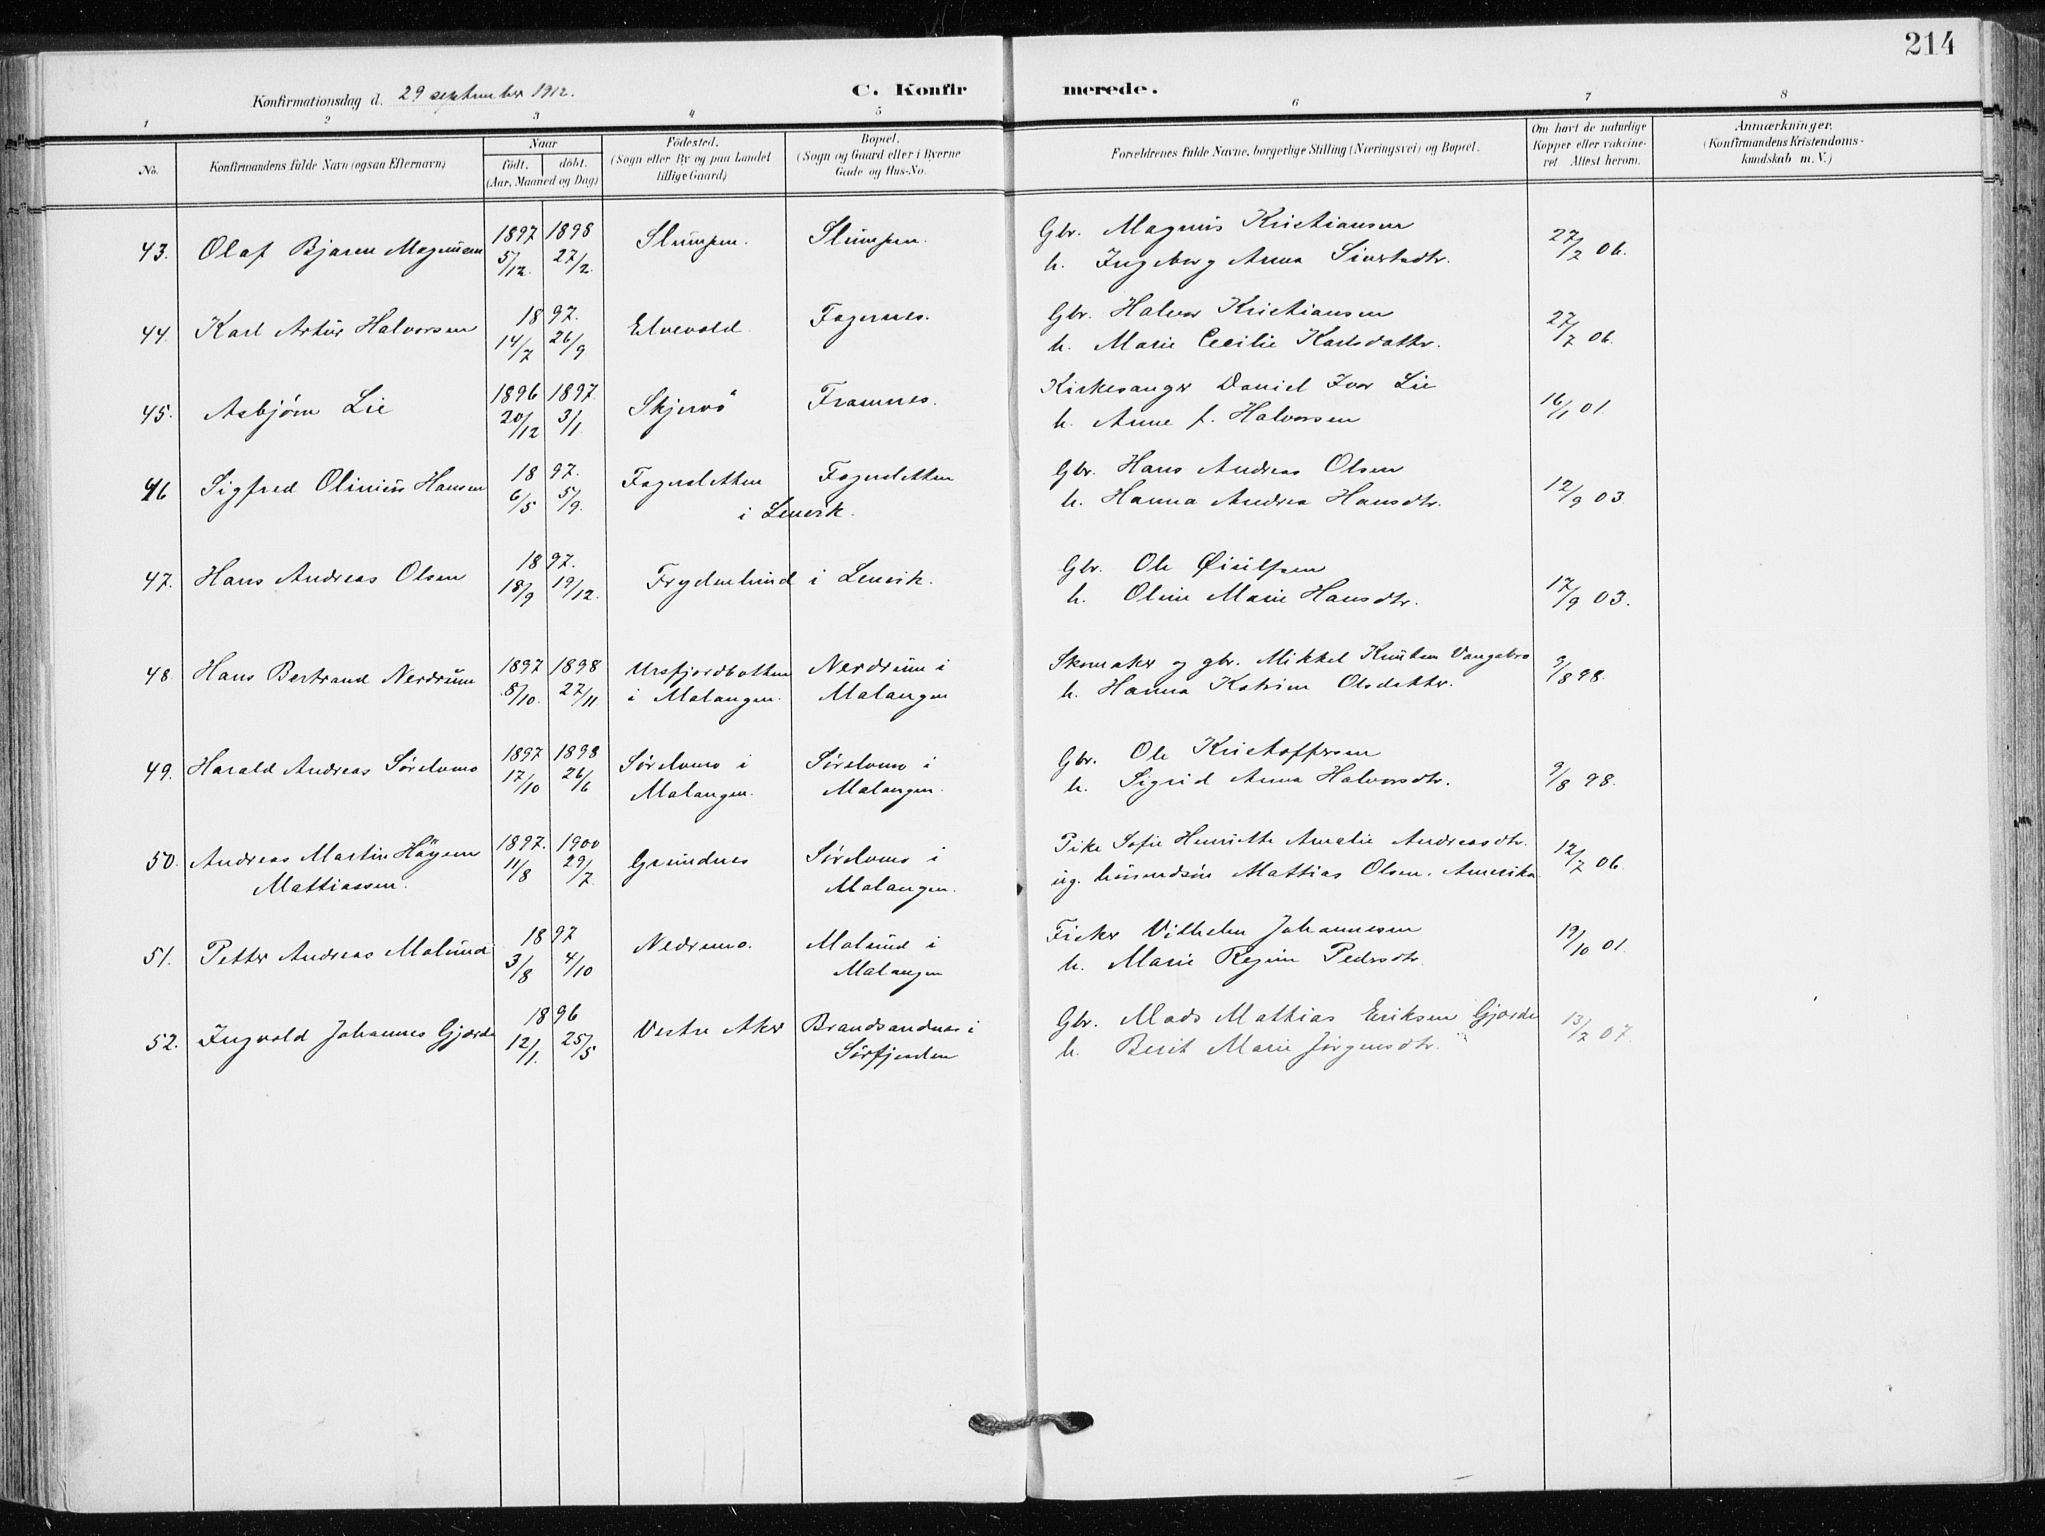 214
Konfirmationsdag d. 29 september 1912.
C. Konfirmerede.
1 2 3 4 5 6 7 8
No.
Konfirmandens fulde Navn (ogsaa Efternavn)
Naar
født. døbt.
(Aar, Maaned og Dag)
Fødested.
(Sogn eller By og paa Landet
tillige Gaard)
Bopæl.
(Sogn og Gaard eller i Byerne
Gade og Hus-No.
Forældrenes fulde Navne, borgerlige Stilling (Næringsvei) og Bopæl.
Om havt de naturlige
Kopper eller vaccine-
ret. Attest herom.
Anmærkninger.
(Konfirmandens Kristendoms-
kundskab m. V.)
43. Olaf Bjaren Magnusen 1897 5/12. 1898 27/2. Slumpen. Slumpen. Gbr. Magnus Kristiansen 27/2 06.
h. Ingeborg Anna Sivertsdtr.
44. Karl Artur Halvorsen 1897. 14/7 26/9 Elvevold. Fagernes. Gbr. Halvor Kristiansen 27/7 06.
h. Marie Cecilie Karlsdattr.
45. Asbjørn Lie 1896 20/12 1897. 3/1. Skjervö Framnes. Kirkesanger Daniel Ivar Lie 16/1 01.
h. Anne f. Halvorsen
46 Sigfred Olinius Hansen 1897. 6/5 5/9. Fagersletten Fagersletten Gbr. Hans Andreas Olsen 12/9 03
i Lenvik. h. Hanna Andrea Hansdtr.
47. Hans Andreas Olsen 1897. 18/9 19/12. Frydenlund i Lenvik. Gbr. Ole Øiulfsen 17/9 03.
h. Oline Marie Hansdtr.
48. Hans Bertrand Nerdrum 1897 8/10. 1898 27/11 Ursfjordbotten Nerdrum i Skomaker og gbr. Mikkel Knutsen Vangsbro 9/8 98.
i Malangen. Malangen h. Hanna Katrine Olsdatter.
49. Harald Andreas Sørelvmo 1897 17/10 1898 26/6 Sørelvmo i Sørelvmo i Gbr. Ole Kristoffersen 9/8 98.
Malangen. Malangen. h. Sigrid Anna Halvorsdtr.
50. Andreas Martin Høyem 1897. 11/8 1900 29/7. Grundnes Sørelvmo i Pike Sofie Henriette Amalie Andreasdtr. 12/7 06.
Mattiassen. Malangen. ug. husmdsøn Mattias Olsen. Amerika
51. Petter Andreas Malund 1897 3/8 4/10 Nedremo. Malund i Fisker Vilhelm Johannesen 19/10 01.
Malangen h. Marie Regine Pedersdtr.
52. Ingvald Johannes Gjærde 1896 12/1. 25/5 Vestre Aker Brandsandnes i Gbr. Mads Mathias Eriksen Gjærde 13/2 07.
Sørfjorden h. Berit Marie Jørgensdtr.